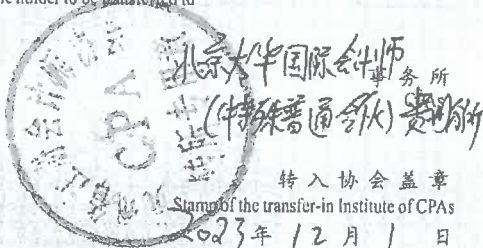 the holder to be transferred to
北京大华国际会计师事务所
(特殊普通合伙)贵州分所
CPA
转入协会盖章
Stamp of the transfer-in Institute of CPAs
2023年12月1日